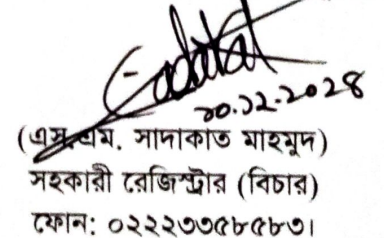 ৩০.১২.২০২৪
(এস.এম. সাদাকাত মাহমুদ)
সহকারী রেজিস্ট্রার (বিচার)
ফোন: ০২২২৩৩৫৮৫৮৩।